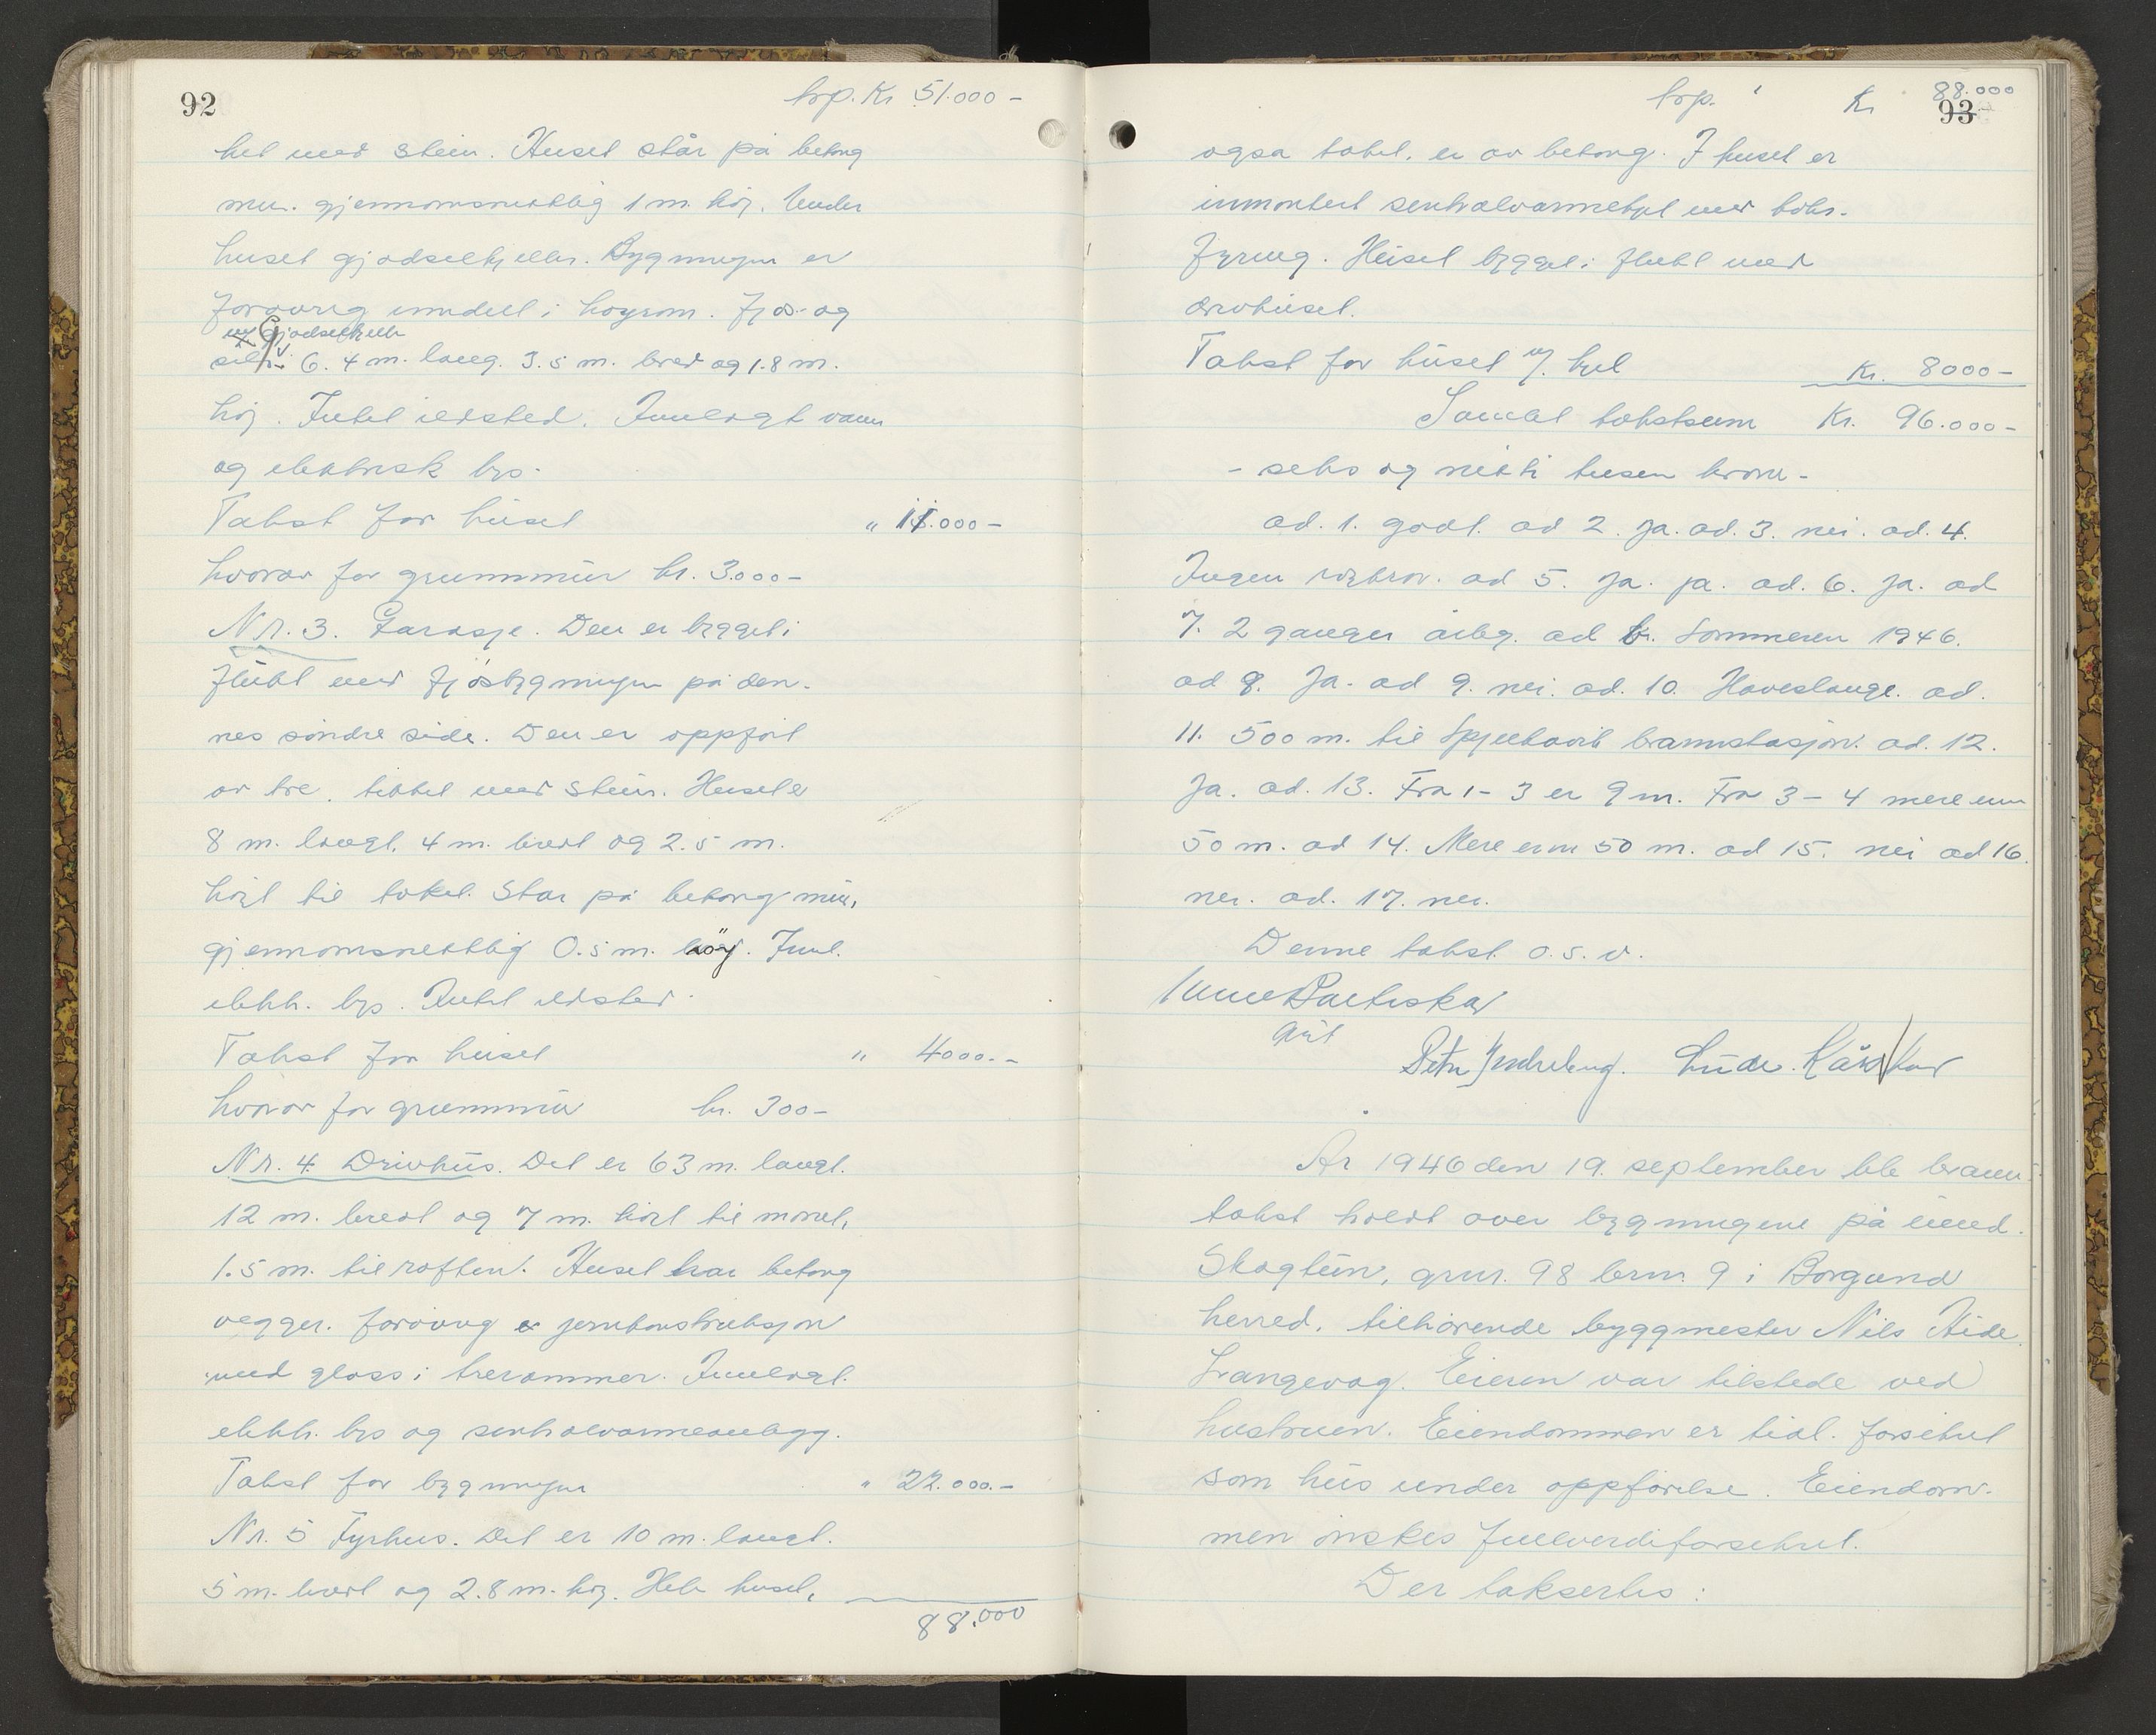 92
trsp. Kr 51.000 -
ket med stein. Huset står på betong
mur. gjennomsnittlig 1 m. høy. Under
huset gjødselkjeller. Bygningen er
forøvrig inndelt i høyrom. fjøs- og
m/ Gjødselkjeller
silo. 6. 4 m. lang. 3.5 m. bred og 1.8 m.
høy. Intet ildsted. Innlagt vann
og elektrisk lys.
Takst for huset " 11.000 -
hvorav for grunnmur kr. 3.000 -
Nr. 3. Garasje. Den er bygget i
flukt med fjøsbygningen på den-
nes søndre side. Den er oppført
av tre. tekket med stein. Huset er
8 m. langt. 4 m. bredt og 2.5 m.
høyt til taket. Står på betong mur,
gjennomsnittlig 0.5 m. høy. Innl.
elektr. lys. Intet ildsted.
Takst for huset " 4000.-
hvorav for grunnmur kr. 300 -
Nr. 4 Drivhus. Det er 63 m. langt.
12 m. bredt og 7 m. høyt til mønet,
1.5 m. til raften. Huset har betong
vegger. forøvrig er jernkonstruksjon
med glass i trerammer. Innlagt.
elektr. lys og sentralvarmeanlegg.
Takst for bygningen " 22.000.-
Nr. 5 Fyrhus. Det er 10 m. langt.
5 m. bredt og 2.8 m. høy. Hele huset,
88.000
trsp. Kr 88.000
93
også taket, er av betong. I huset er
innmontert sentralvarmekjel med koks-
fyring. Huset bygget i flukt med
drivhuset.
Takst for huset m/. kjel Kr. 8000 -
Samlet takstsum Kr. 96.000 -
- seks og nitti tusen kroner -
ad. 1. godt. ad 2. ja. ad. 3. nei. ad. 4.
Ingen ad 5. Ja. ja. ad. 6. Ja. ad
7. 2 ganger årlig. ad Sommeren 1946.
ad 8. Ja. ad 9. nei. ad. 10. Haveslange. ad.
11. 500 m. til Spjelkavik brannstasjon. ad. 12.
Ja. ad. 13. Fra 1 - 3 er 9 m. Fra 3 - 4 mere enn
50 m. ad 14. Mere enn 50 m. ad 15. nei ad 16.
nei. ad. 17. nei.
Denne takst o.s.v.
Petter Indreberg.
År 1946 den 19. september ble brann-
takst holdt over bygningene på eiend.
Skogtun, gnr. 98 brn. 9 i Borgund
herred, tilhørende byggmester Nils Eide
Langevåg. Eieren var tilstede ved
hustruen. Eiendommen er tidl. forsikret
som hus under oppførelse. Eiendom-
men ønskes fullverdiforsikret.
Der taksertes: